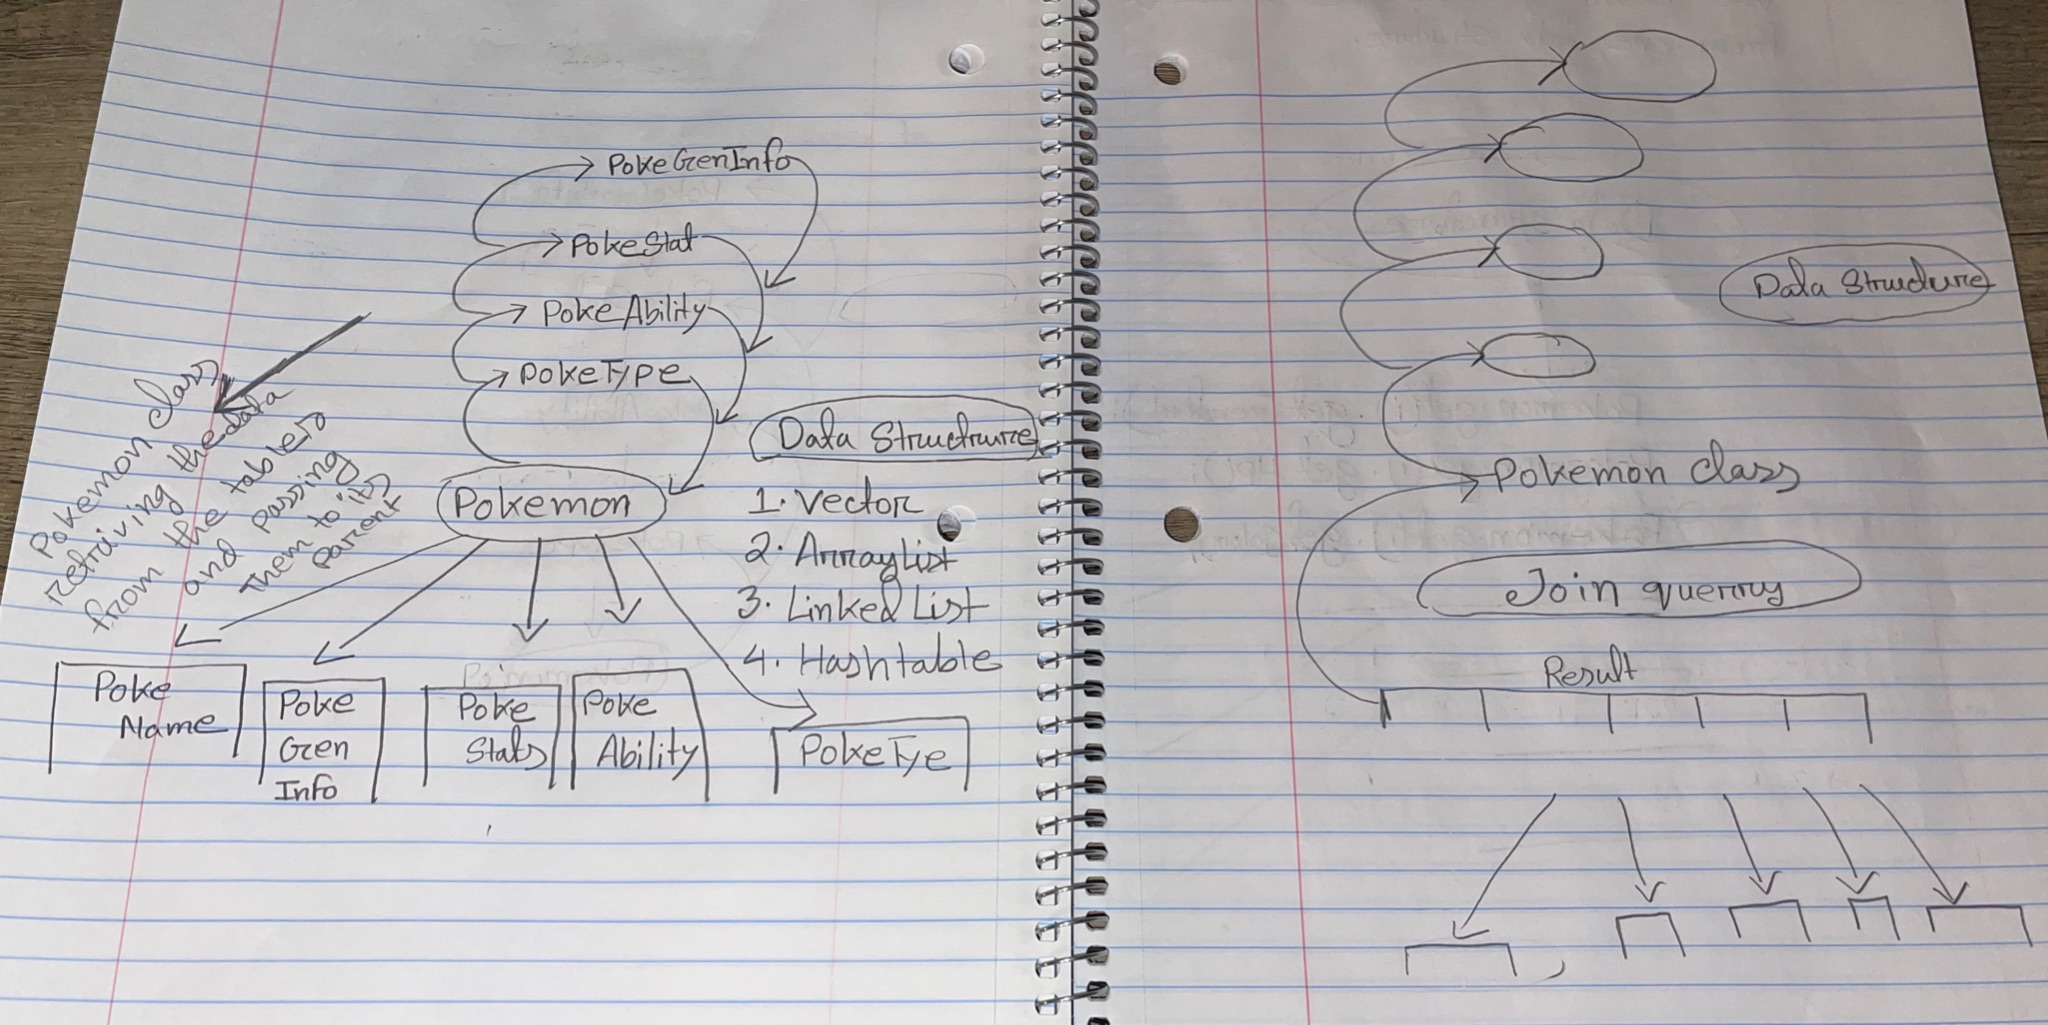 PokeGenInfo
PokeStat
PokeAbility
PokeType
Pokemon
Pokemon class
retriving the data
from the tables
and passing
them to its
parent
Data Structrure
1. Vector
2. ArrayList
3. Linked List
4. Hashtable
Poke
Name
Poke
Gen
Info
Poke
Stats
Poke
Ability
PokeTye
Data Structure
Pokemon class
Join querry
Result